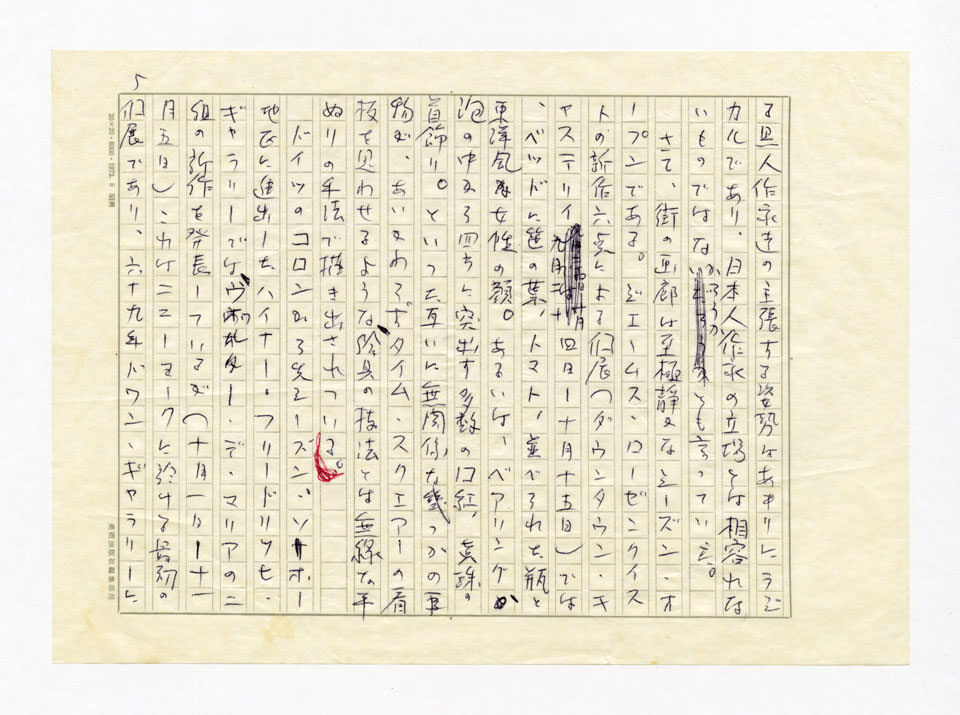 る黒人作家達の主張する姿勢はあまりにラジ
カルであり、日本人作家の立場とは相容れな
いものではないかとも言っている。
さて、街の画廊は至極静かなシーズン・オ
ープンである。ジェームス・ローゼンクイス
トの新作六点による個展(ダウンタウン・キ
ャステリイ 九月二十四日ー十月十五日)では
、ベッドに笹の葉、トマト、並べられた瓶と
東洋風な女性の顔。あるいは、ベアリングか
泡の中から四方に突出す多数の口紅、真珠の
首飾り。といった互いに無関係な幾つかの事
物が、あいかわらずタイム・スクエアーの看
板を思わせるような絵具の技法とは無縁な平
ぬりの手法で描き出されている。
ドイツのコロンから先シーズン、ソーホー
地区に進出したハイナー・フリードリッヒ・
ギャラリーではウォルター・デ・マリアの二
組の新作を発表しているが(十月一日ー十一
月五日)これはニューヨークに於ける最初の
個展であり、六十九年ドワン・ギャラリーに
5
20×20